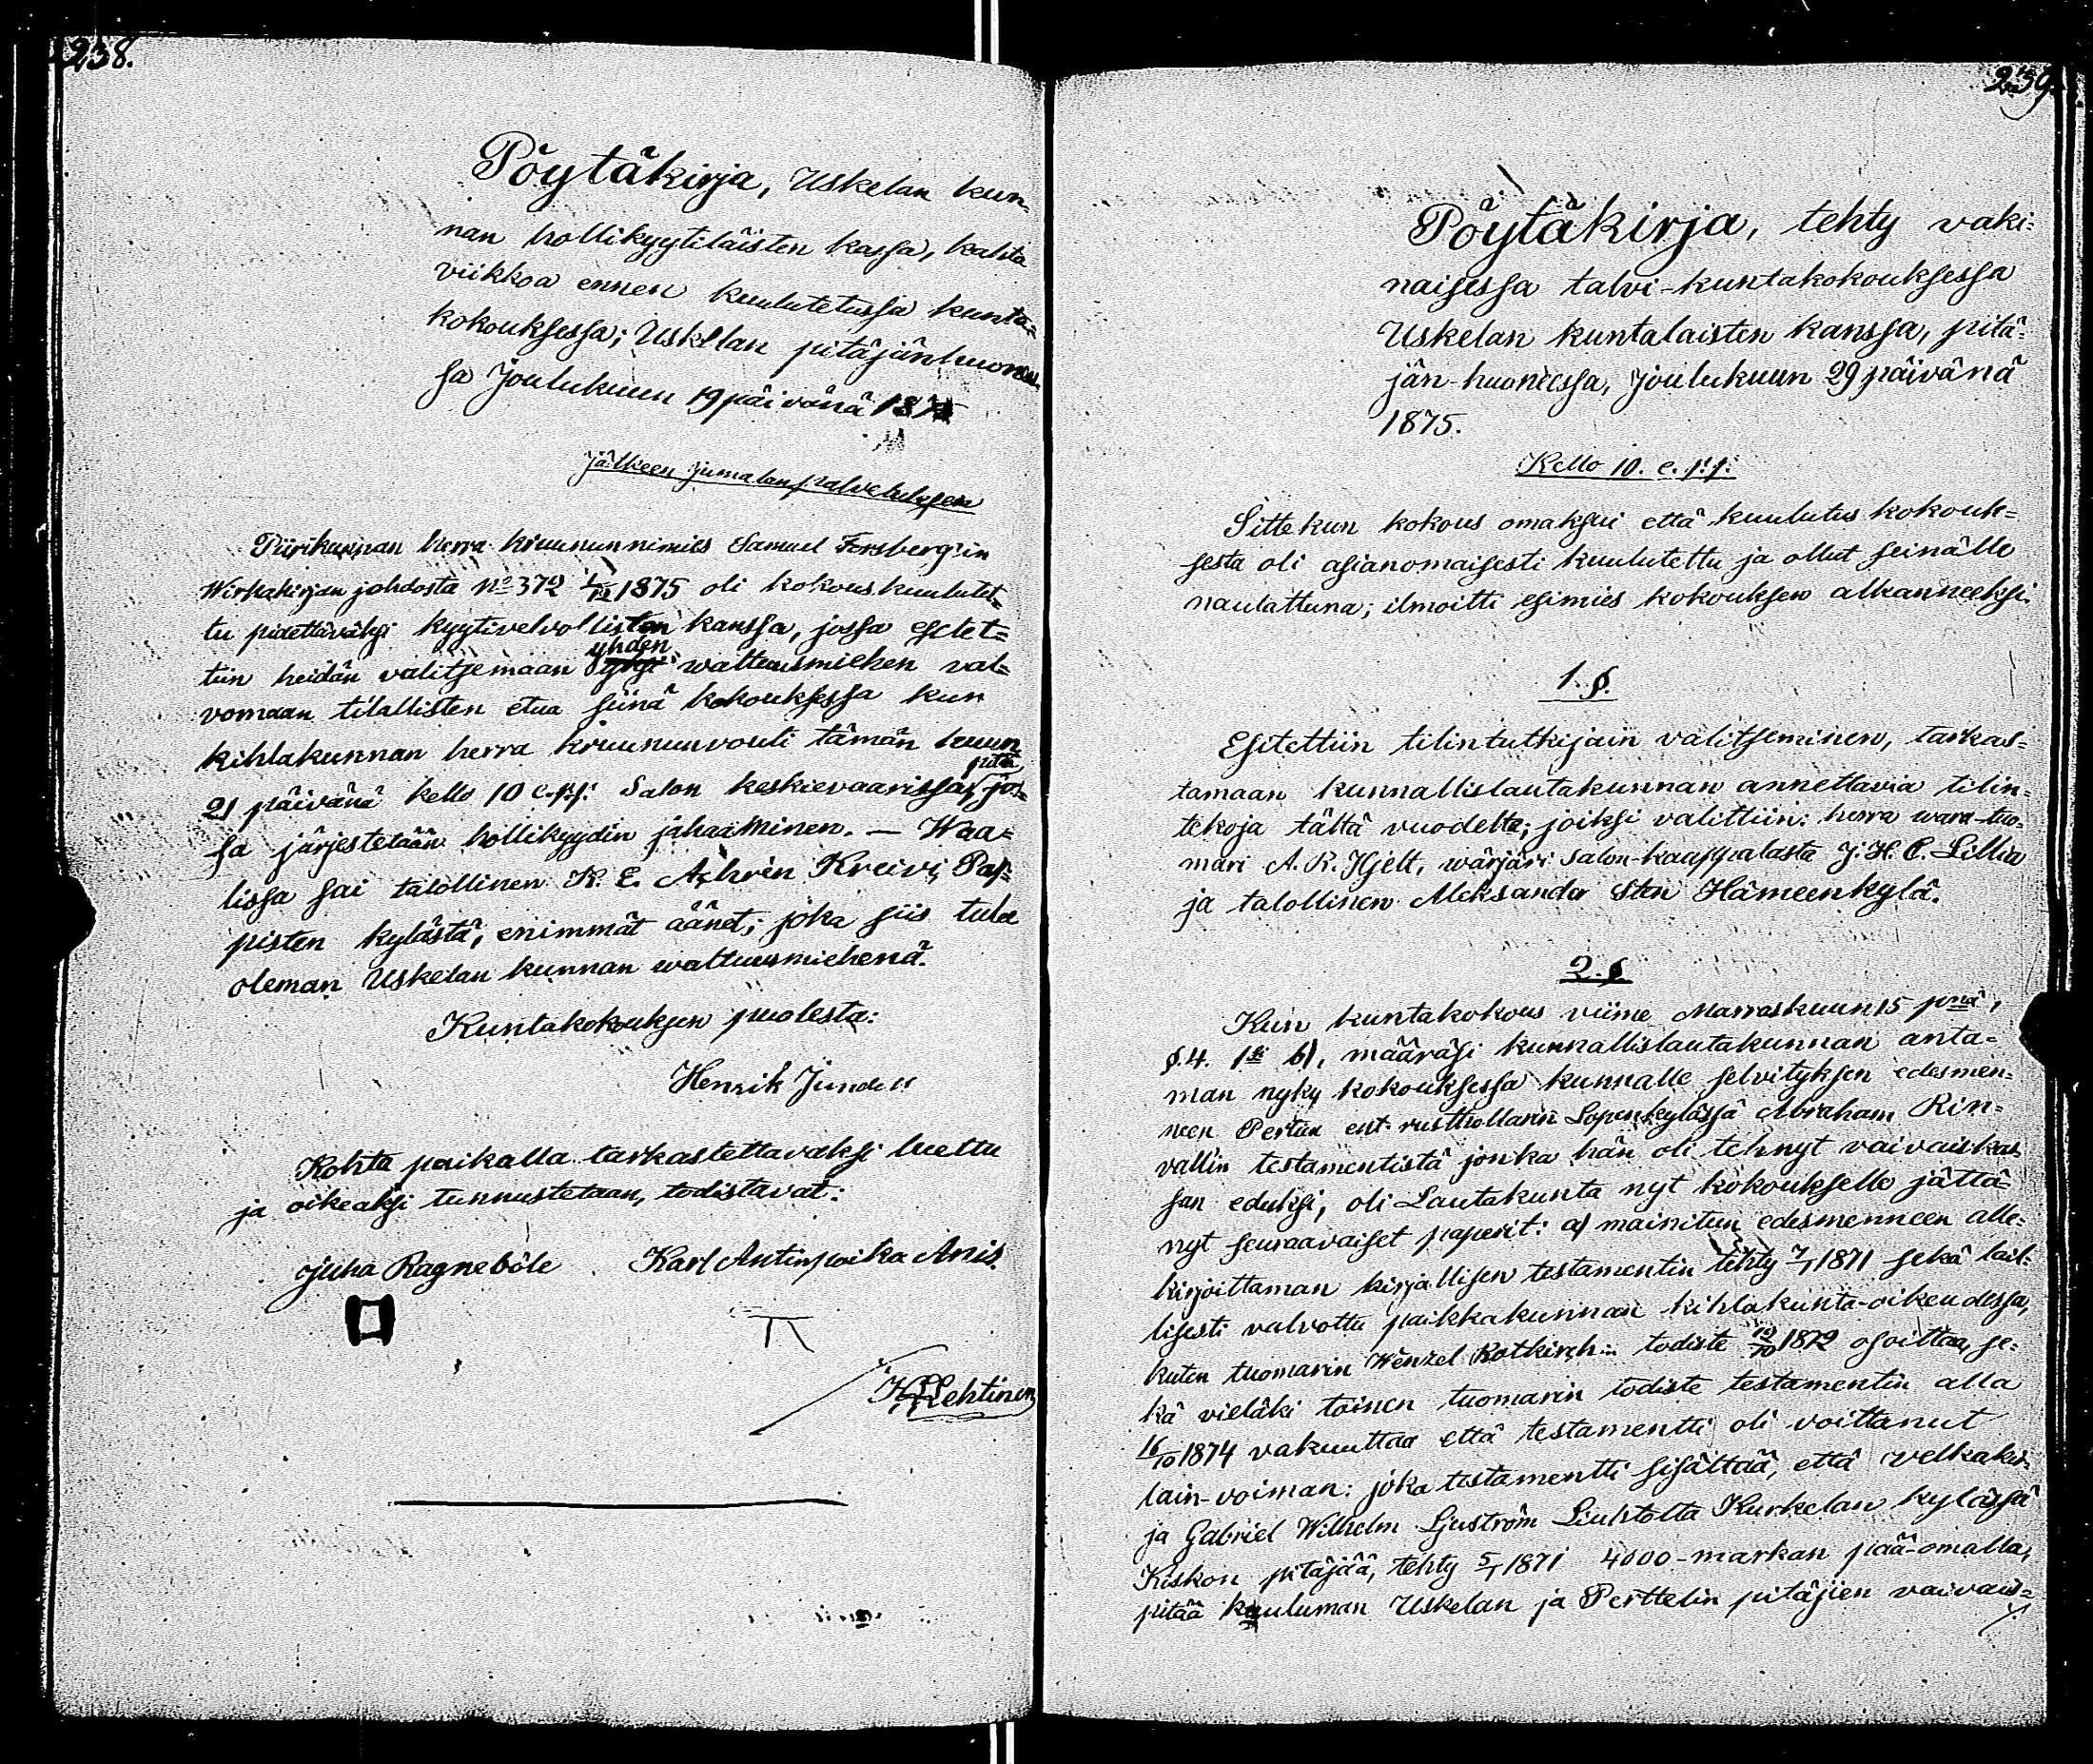 238.
Pöytäkirja, Uskelan kun-
nan hollikyytiläisten kassa, kahta
viikkoa ennen kuulutetussa kunta=
kokouksessa; Uskelan pitäjänhuonees-
sa Joulukuun 19 päivänä 1875
Jälkeen jumalanpalveluksen
Piirikunnan herra kruununnimies Samuel Forsberg'in
Wirkakirjan johdosta No 372 1/12 1875 oli kokous kuulutet=
tu pidettäväksi kyytivelvollisten kanssa, jossa esitet=
tiin heidän valitsemaan yhden waltuusmiehen val=
vomaan tilallisten etua siinä kokouksessa kun
kihlakunnan herra kruununvouti tämän kuun
21 päivänä kello 10 e.p.p. Salon keskievaarissa pitää, jos=
sa järjestetään hollikyydin jakaaminen. — Waa=
lissa sai talollinen K. E. Achrén Kreivi, Pap=
pisten kylästä, enimmät äänet; joka siis tulee
oleman Uskelan kunnan waltuusmiehenä.
Kuntakokouksen puolesta:
Henrik Junde
Kohta paikalla tarkastettavaksi luettu
ja oikeaksi tunnustetaan, todistavat:
Juha Ragneböle Karl Antinpoika Anis.
Lehtinen
239.
Pöytäkirja, tehty vaki=
naisessa talvi-kuntakokouksessa
Uskelan kuntalaisten kanssa, pitä=
jän-huoneessa, Joulukuun 29 päivänä
1875.
Kello 10. e. p. p.
Sittekun kokous omaksui että kuulutus kokouk=
sesta oli asianomaisesti kuulutettu ja ollut seinälle
naulattuna; ilmoitti esimies kokouksen alkanneeksi.
1. §.
Esitettiin tilintutkijain valitseminen, tarkas=
tamaan kunnallislautakunnan annettavia tilin=
tekoja tältä vuodelta; joiksi valittiin: herra wara-tuo=
mari A. R. Hjelt, wärjäri Salon-kauppalasta J. H. C. Lillia
ja talollinen Aleksander Sten Hämeenkylä.
2. §.
Kun kuntakokous viime Marraskuun 15 pnä,
§. 4. 1si b), määräsi kunnallislautakunnan anta=
man nyky kokouksessa kunnalle selvityksen edesmen=
neen Pertun ent. rusthollarin Sopenkylässä Abraham Rin=
vallin testamentistä jonka hän oli tehnyt vaivaiskas
san eduksi, oli Lautakunta nyt kokoukselle jättä=
nyt seuraavaiset paperit: a) mainitun edesmenneen alle=
kirjoittaman kirjallisen testamentin tehty 7/1 1871 sekä lail=
lisesti valvottu paikkakunnan kihlakunta-oikeudessa,
kuten tuomarin Wenzel Rotkirch:in todiste 19/10 1872 osoittaa, se=
kä vieläki toinen tuomarin todiste testamentin alla
16/10 1874 vakuuttaa että testamentti oli voittanut
lain-voiman: joka testamentti sisältää, että velkakir=
ja Gabriel Wilhelm Ljuström Liuhtolta Kurkelan kylässä
Kiskon pitäjää, tehty 5/1 1871 4000-markan pää-omalla,
pitää kuuluman Uskelan ja Perttelin pitäjien vaivais=